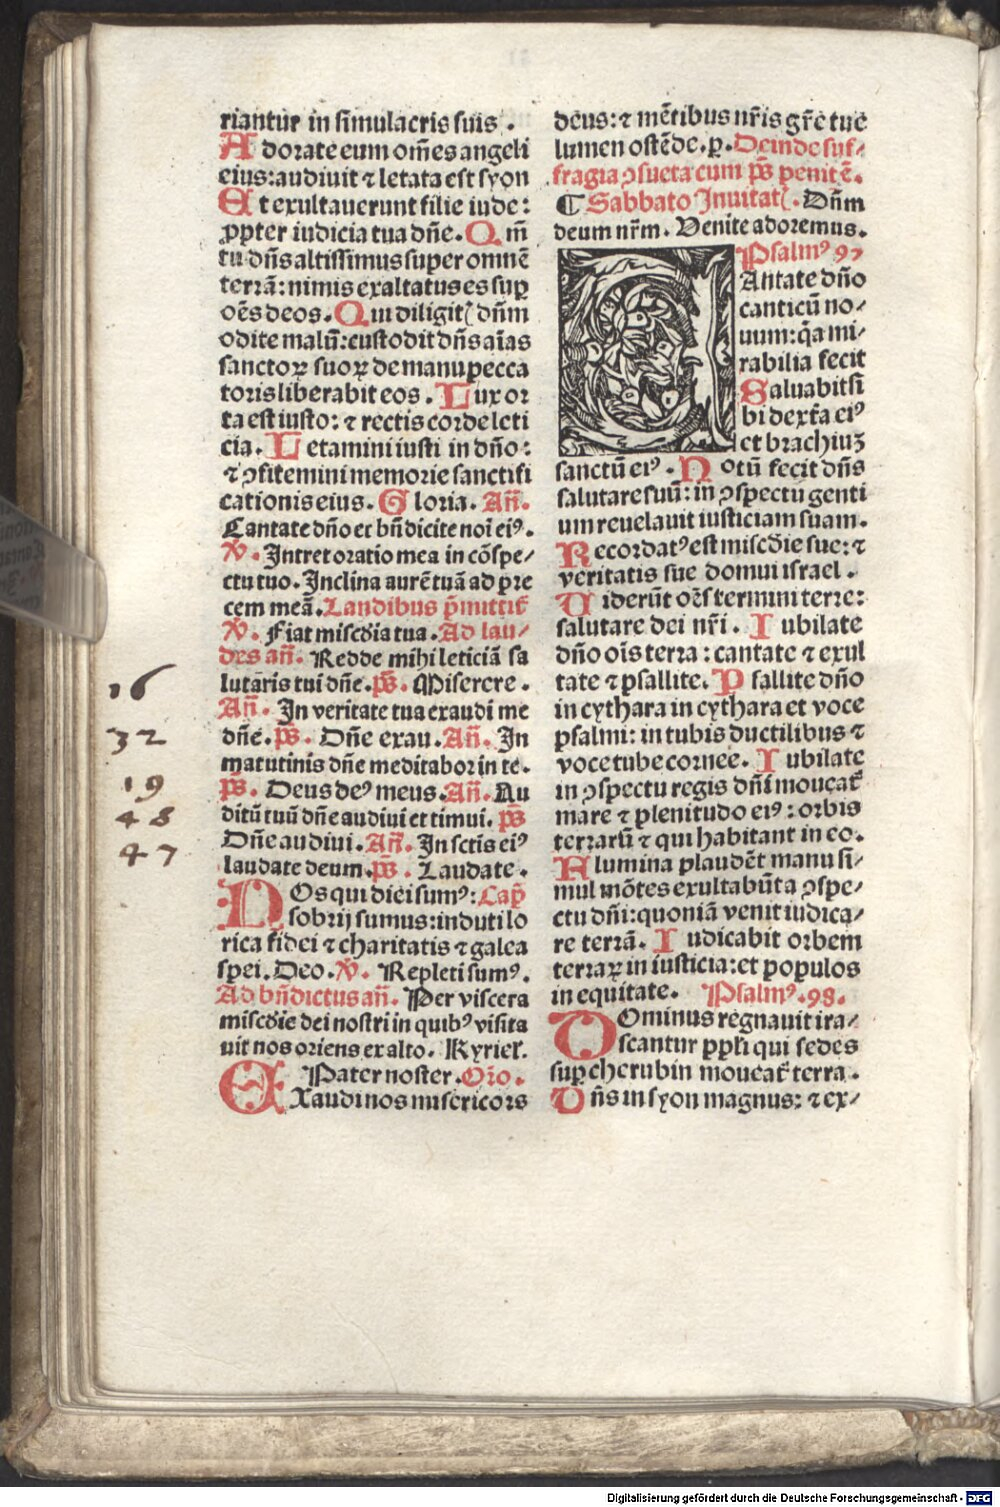 riantur in simulacris suis .
Adorate eum om̄es angeli
eius: audiuit ⁊ letata est syon
Et exultauerunt filie iude:
ꝓpter iudicia tua dn̄e. Qm̄
tu dn̄s altissimus super omnē
terrā: nimis exaltatus es suꝑ
oēs deos. Qui diligitꝭ dn̄m
odite malū: custodit dn̄s aīas
sanctoꝝ suoꝝ de manu pecca
toris liberabit eos . Lux or
ta est iusto: ⁊ rectis corde leti
cia. Letamini iusti in dn̄o:
⁊ ꝯfitemini memorie sanctifi
cationis eius. Gloria. Añ.
Cantate dn̄o et bn̄dicite noī eiꝰ.
℣. Intret oratio mea in cōspe/
ctu tuo. Inclina aurē tuā ad pre
cem meā. Laudibus p̄mittit᷑
℣. Fiat misc̄dia tua. Ad lau/
des añ. Redde mihi leticiā sa
lutaris tui dn̄e. ps̄. Miserere .
Añ. In veritate tua exaudi me
dn̄e. ps̄. Dn̄e exau. Añ. In
matutinis dn̄e meditabor in te.
ps̄. Deus deꝰ meus. Añ. Au
ditū tuū dn̄e audiui et timui. ps̄
Dn̄e audiui. Añ. In sctīs eiꝰ
laudate deum. ps̄. Laudate .
NOs qui diei sumꝰ: Cap̄
sobrij sumus: induti lo
rica fidei ⁊ charitatis ⁊ galea
spei. Deo. ℣. Repleti sumꝰ.
Ad bn̄dictus añ. Per viscera
misc̄die dei nostri in quibꝰ visita
uit nos oriens ex alto. Kyriel̄.
Pater noster. Or̄o.
EXaudi nos misericors
16
32
19
48
47
deus: ⁊ mētibus nr̄is gr̄e tue
lumen ostēde. ꝑ. Deinde suf/
fragia ꝯsueta cum ps̄ penitē.
¶ Sabbato Inuitatꝭ. Dn̄m
deum nr̄m. Venite adoremus.
Psalmꝰ 97
CAntate dn̄o
canticū no/
uum: q̄a mi/
rabilia fecit
Saluabit si
bi dext̄a eiꝰ
et brachiuꝫ
sanctū eiꝰ. Notū fecit dn̄s
salutare suū: in ꝯspectu genti
um reuelauit iusticiam suam.
Recordatꝰ est misc̄die sue: ⁊
veritatis sue domui israel .
Viderūt oēs termini terre:
salutare dei nr̄i. Iubilate
dn̄o oīs terra: cantate ⁊ exul
tate ⁊ psallite. Psallite dn̄o
in cythara in cythara et voce
psalmi: in tubis ductilibus ⁊
voce tube cornee. Iubilate
in ꝯspectu regis dn̄i moueat᷑
mare ⁊ plenitudo eiꝰ: orbis
terrarū ⁊ qui habitant in eo.
Flumina plaudēt manu si/
mul mōtes exultabūt a ꝯspe/
ctu dn̄i: quoniā venit iudica/
re terrā. Iudicabit orbem
terraꝝ in iusticia: et populos
in equitate. Psalmꝰ. 98.
DOminus regnauit ira/
scantur ppl̄i qui sedes
suꝑ cherubin moueat᷑ terra .
Dn̄s in syon magnus: ⁊ ex/
Digitalisierung gefördert durch die Deutsche Forschungsgemeinschaft - DFG